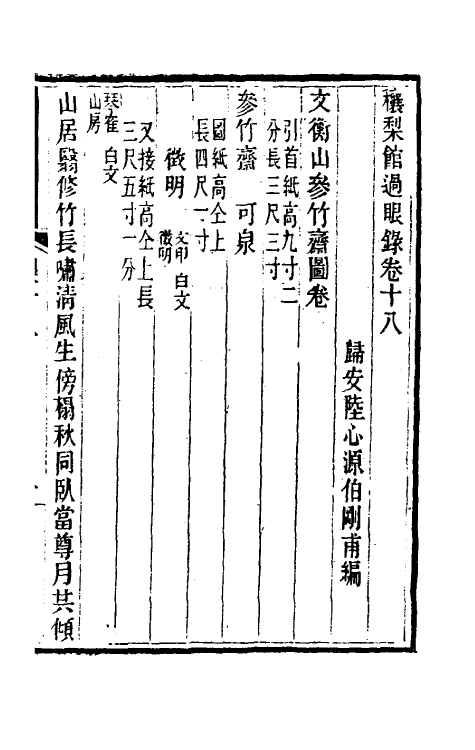 穰梨館過眼錄卷十八
歸安陸心源伯剛甫編
文衡山參竹齋圖卷
引首紙高九寸二
分長三尺三寸
參竹齋　可泉
圖紙高仝上
長四尺一寸
徵明　文印徵明　白文
又接紙高仝上長
三尺五寸一分
琴雀山房　白文
山居翳修竹長嘯清風生傍榻秋同臥當尊月共傾